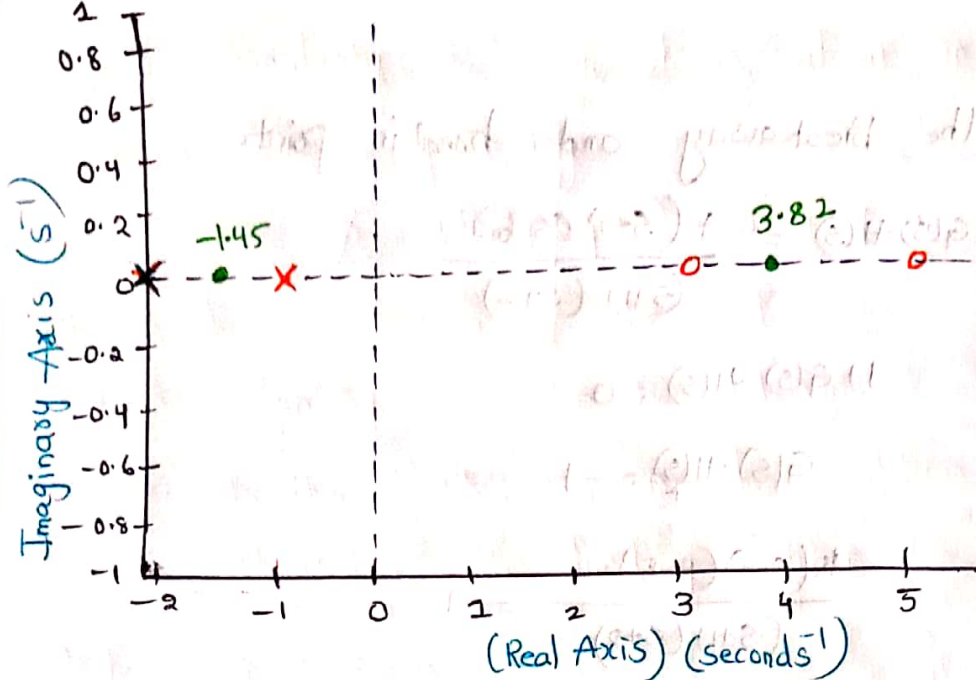 1
0.8
0.6
0.4
0.2
0
-0.2
-0.4
-0.6
-0.8
-1
Imaginary-Axis (s⁻¹)
-1.45
3.82
-2 -1 0 1 2 3 4 5
(Real Axis) (seconds⁻¹)